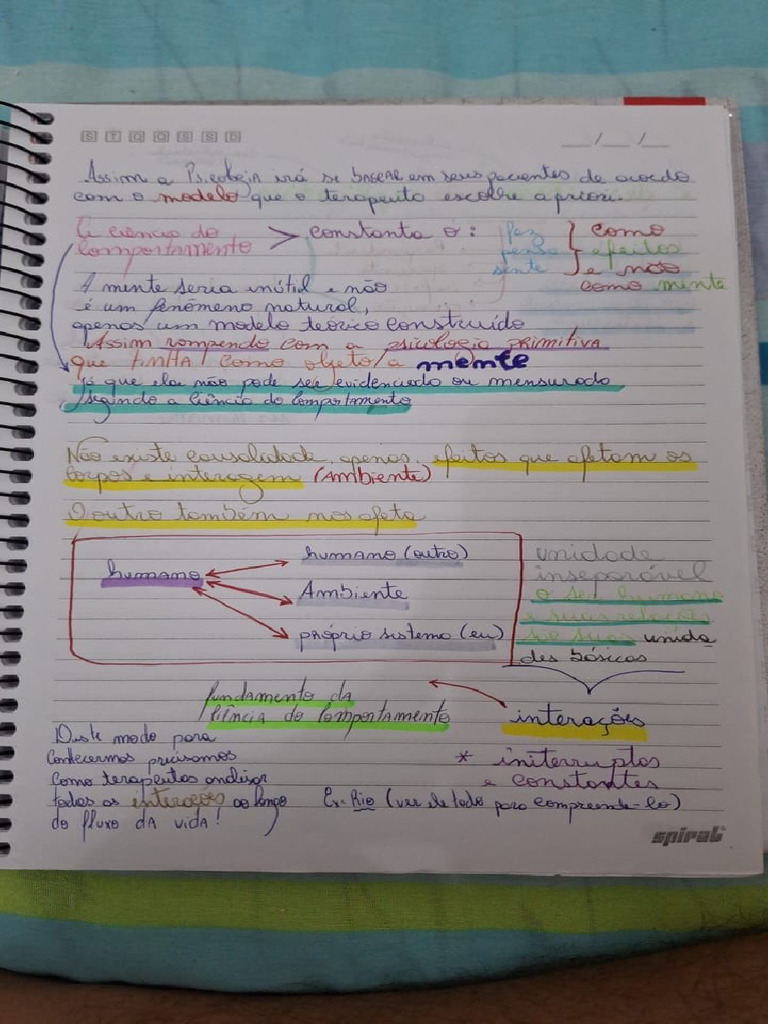 S T Q Q S S D
__/__/__
Assim a Psicologia irá se basear em seus pacientes de acordo
com o modelo que o terapeuta escolhe a priori.
ciência do
comportamento > constanta o: faz
pensa
sente } como
efeitos
e não
como mente
A mente seria inútil e não
é um fenômeno natural,
apenas um modelo teórico construído
Assim rompendo com a psicologia primitiva
que tinha como objeto a mente
já que ela não pode ser evidenciado ou mensurado
segundo a ciência do comportamento
Não existe causalidade, apenas, efeitos que afetam os
corpos e interagem (Ambiente)
O outro também nos afeta
humano
humano (outro)
Ambiente
próprio sistema (eu)
unidade
inseparável
o ser humano
e suas relação
são suas unida
des básicas
fundamento da
Ciência do Comportamento
interações
* initerruptas
e constantes
Deste modo para
conhecermos precisamos
como terapeutas analisar
todas as interações ao longo
do fluxo da vida!
Ex: Rio (ver de lado para compreende-lo)
spiral